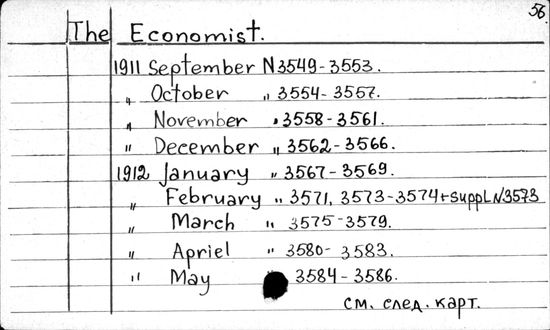 56.
The Economist.
1911 September N 3549-3553.
„ October „ 3554-3557.
„ November „ 3558-3561.
„ December „ 3562-3566.
1912 January „ 3567-3569.
„ February „ 3571, 3573-3574+suppl N 3573
„ March „ 3575-3579.
„ Apriel „ 3580- 3583.
„ May 3584-3586.
см. след. карт.